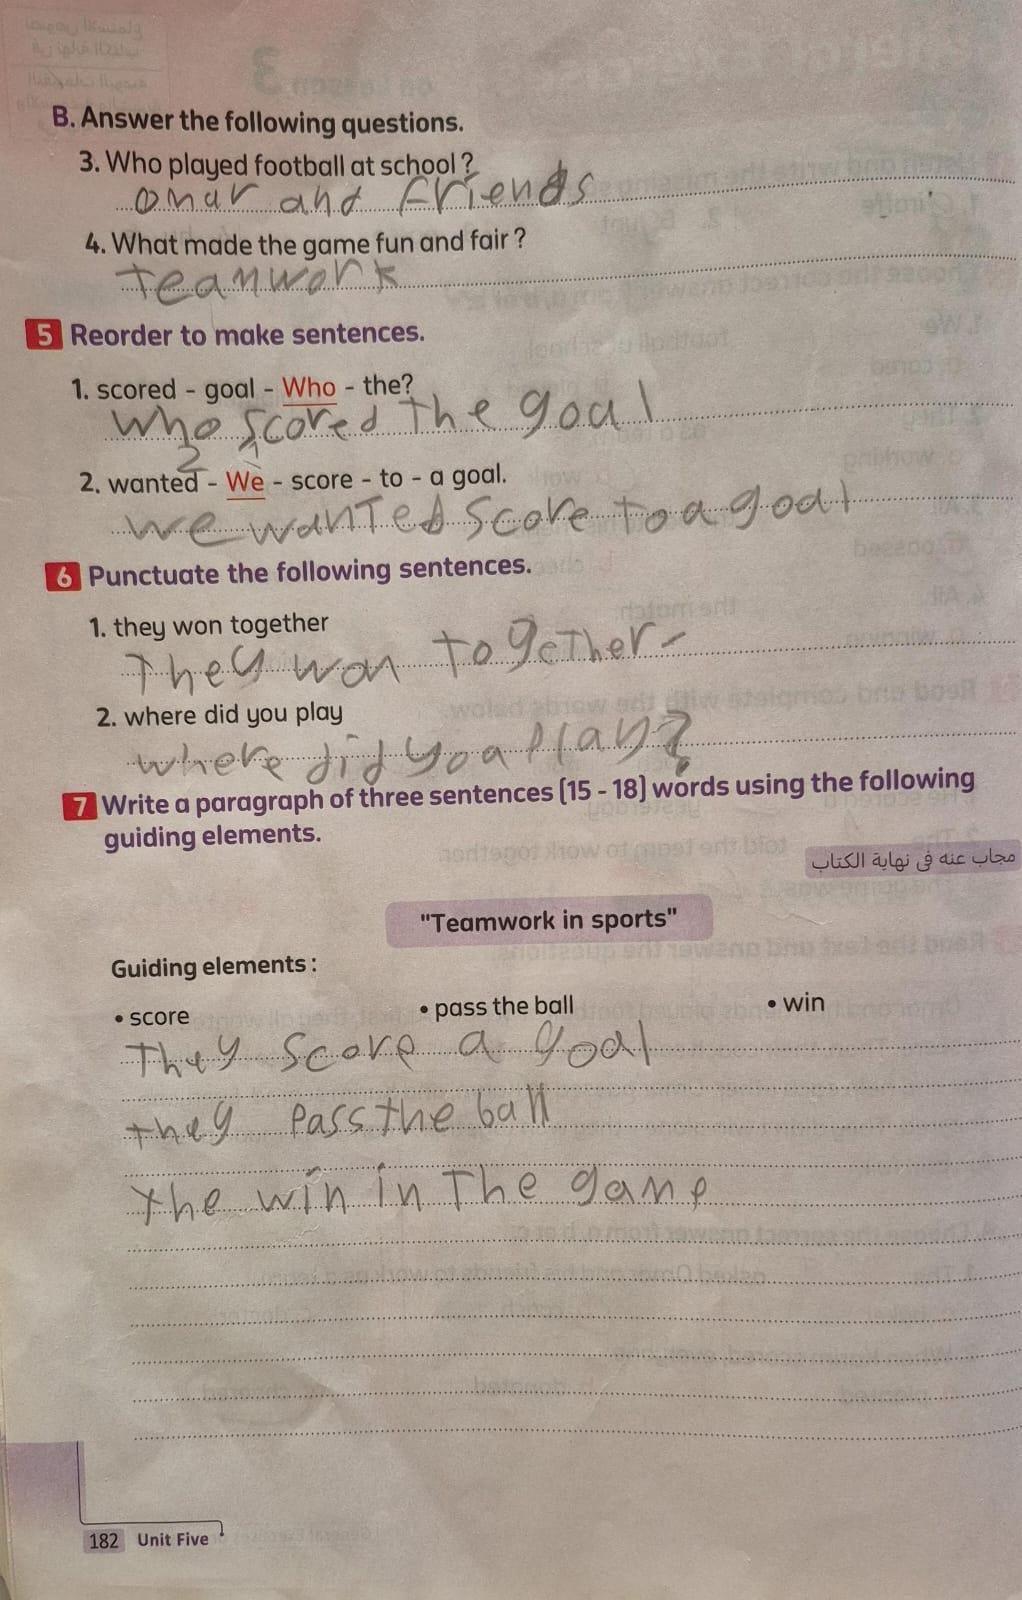 B. Answer the following questions.
3. Who played football at school?
omar and friends
4. What made the game fun and fair?
Teamwork
5 Reorder to make sentences.
1. scored - goal - Who - the?
Who scored The goal
2 1
2. wanted - We - score - to - a goal.
we wanTed score to a goal
6 Punctuate the following sentences.
1. they won together
They won together -
2. where did you play
where did you play?
7 Write a paragraph of three sentences (15 - 18) words using the following
guiding elements.
مجاب عنه فى نهاية الكتاب
"Teamwork in sports"
Guiding elements:
• score • pass the ball • win
They score a goal
they pass the ball
the win in The game
182 Unit Five